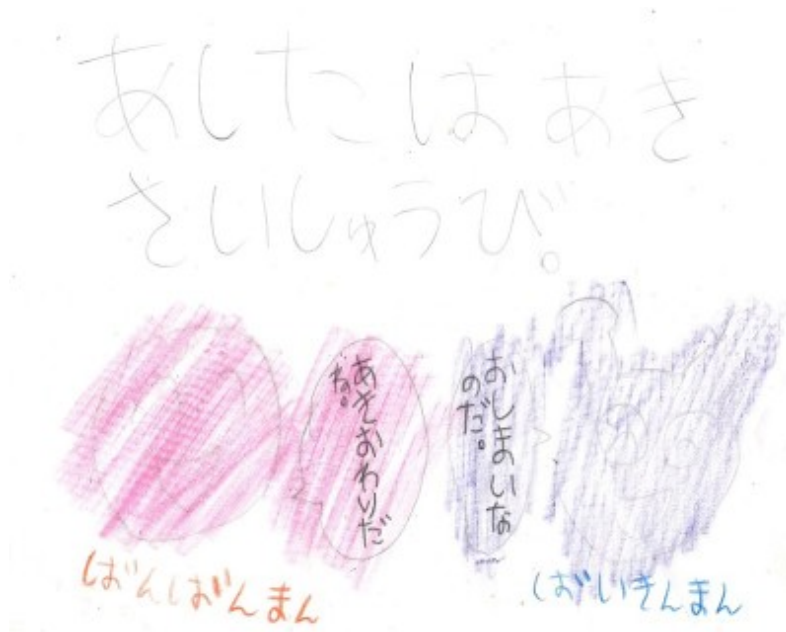 あしたはあき
さいしゅうび。
あきおわりだ
ね。
おしまいな
のだ。
ばんばんまん
ばいきんまん